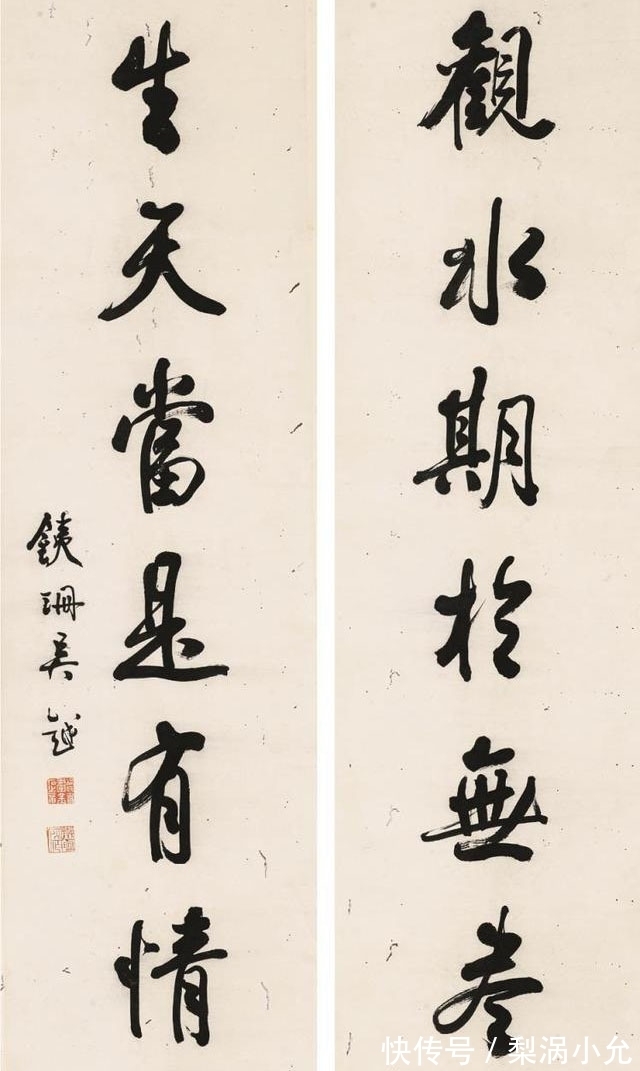 觀水期於無
生天當是有情
銕珊吳
快传号 / 梨涡小允